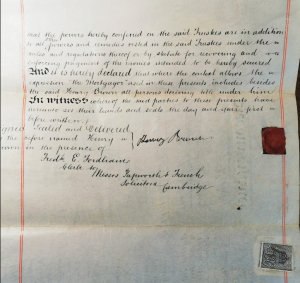 that the powers hereby conferred in the said Trustees are in addition
powers and remedies vested in the said Trustees under the
and regulations thereof or by statute for recovering and
enforcing payment of the monies intended to be hereby secured
And it is hereby declared that where the context allows the
expression the Mortgagor used in these presents includes besides
the said Henry Brown all persons deriving title under him
In witness whereof the said parties to these presents have
hereunto set their hands and seals the day and year first
before written
Signed Sealed and Delivered
the before named Henry
Brown in the presence of
Henry Brown
Fredk E. Fordham
Clerk to
Messrs Papworth & French
Solicitors
Cambridge